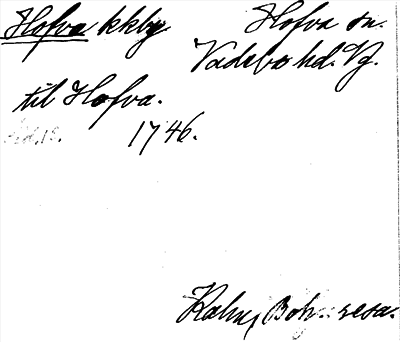 Hofva kkby Hofva sn.
Vadsbo hd. Vg.
til Hofva.
1746.
Kalm, Boh resa.